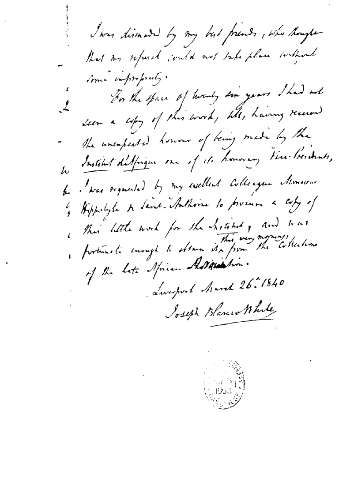 I was dissuaded by my best friends, who thought
that my refusal could not take place without
some impropriety.
For the space of twenty six years I had not
seen a copy of this work, till, having received
the unexpected honour of being made by the
Institut d'Afrique one of its honorary Vice-Presidents,
I was requested by my excellent Colleague Monsieur
Hippolyte de Saint-Anthoine to procure a copy of
this little work for the Institut, and was
this very morning,
fortunate enough to obtain it from the Collections
of the late African Association.
Liverpool March 26th 1840
Joseph Blanco White